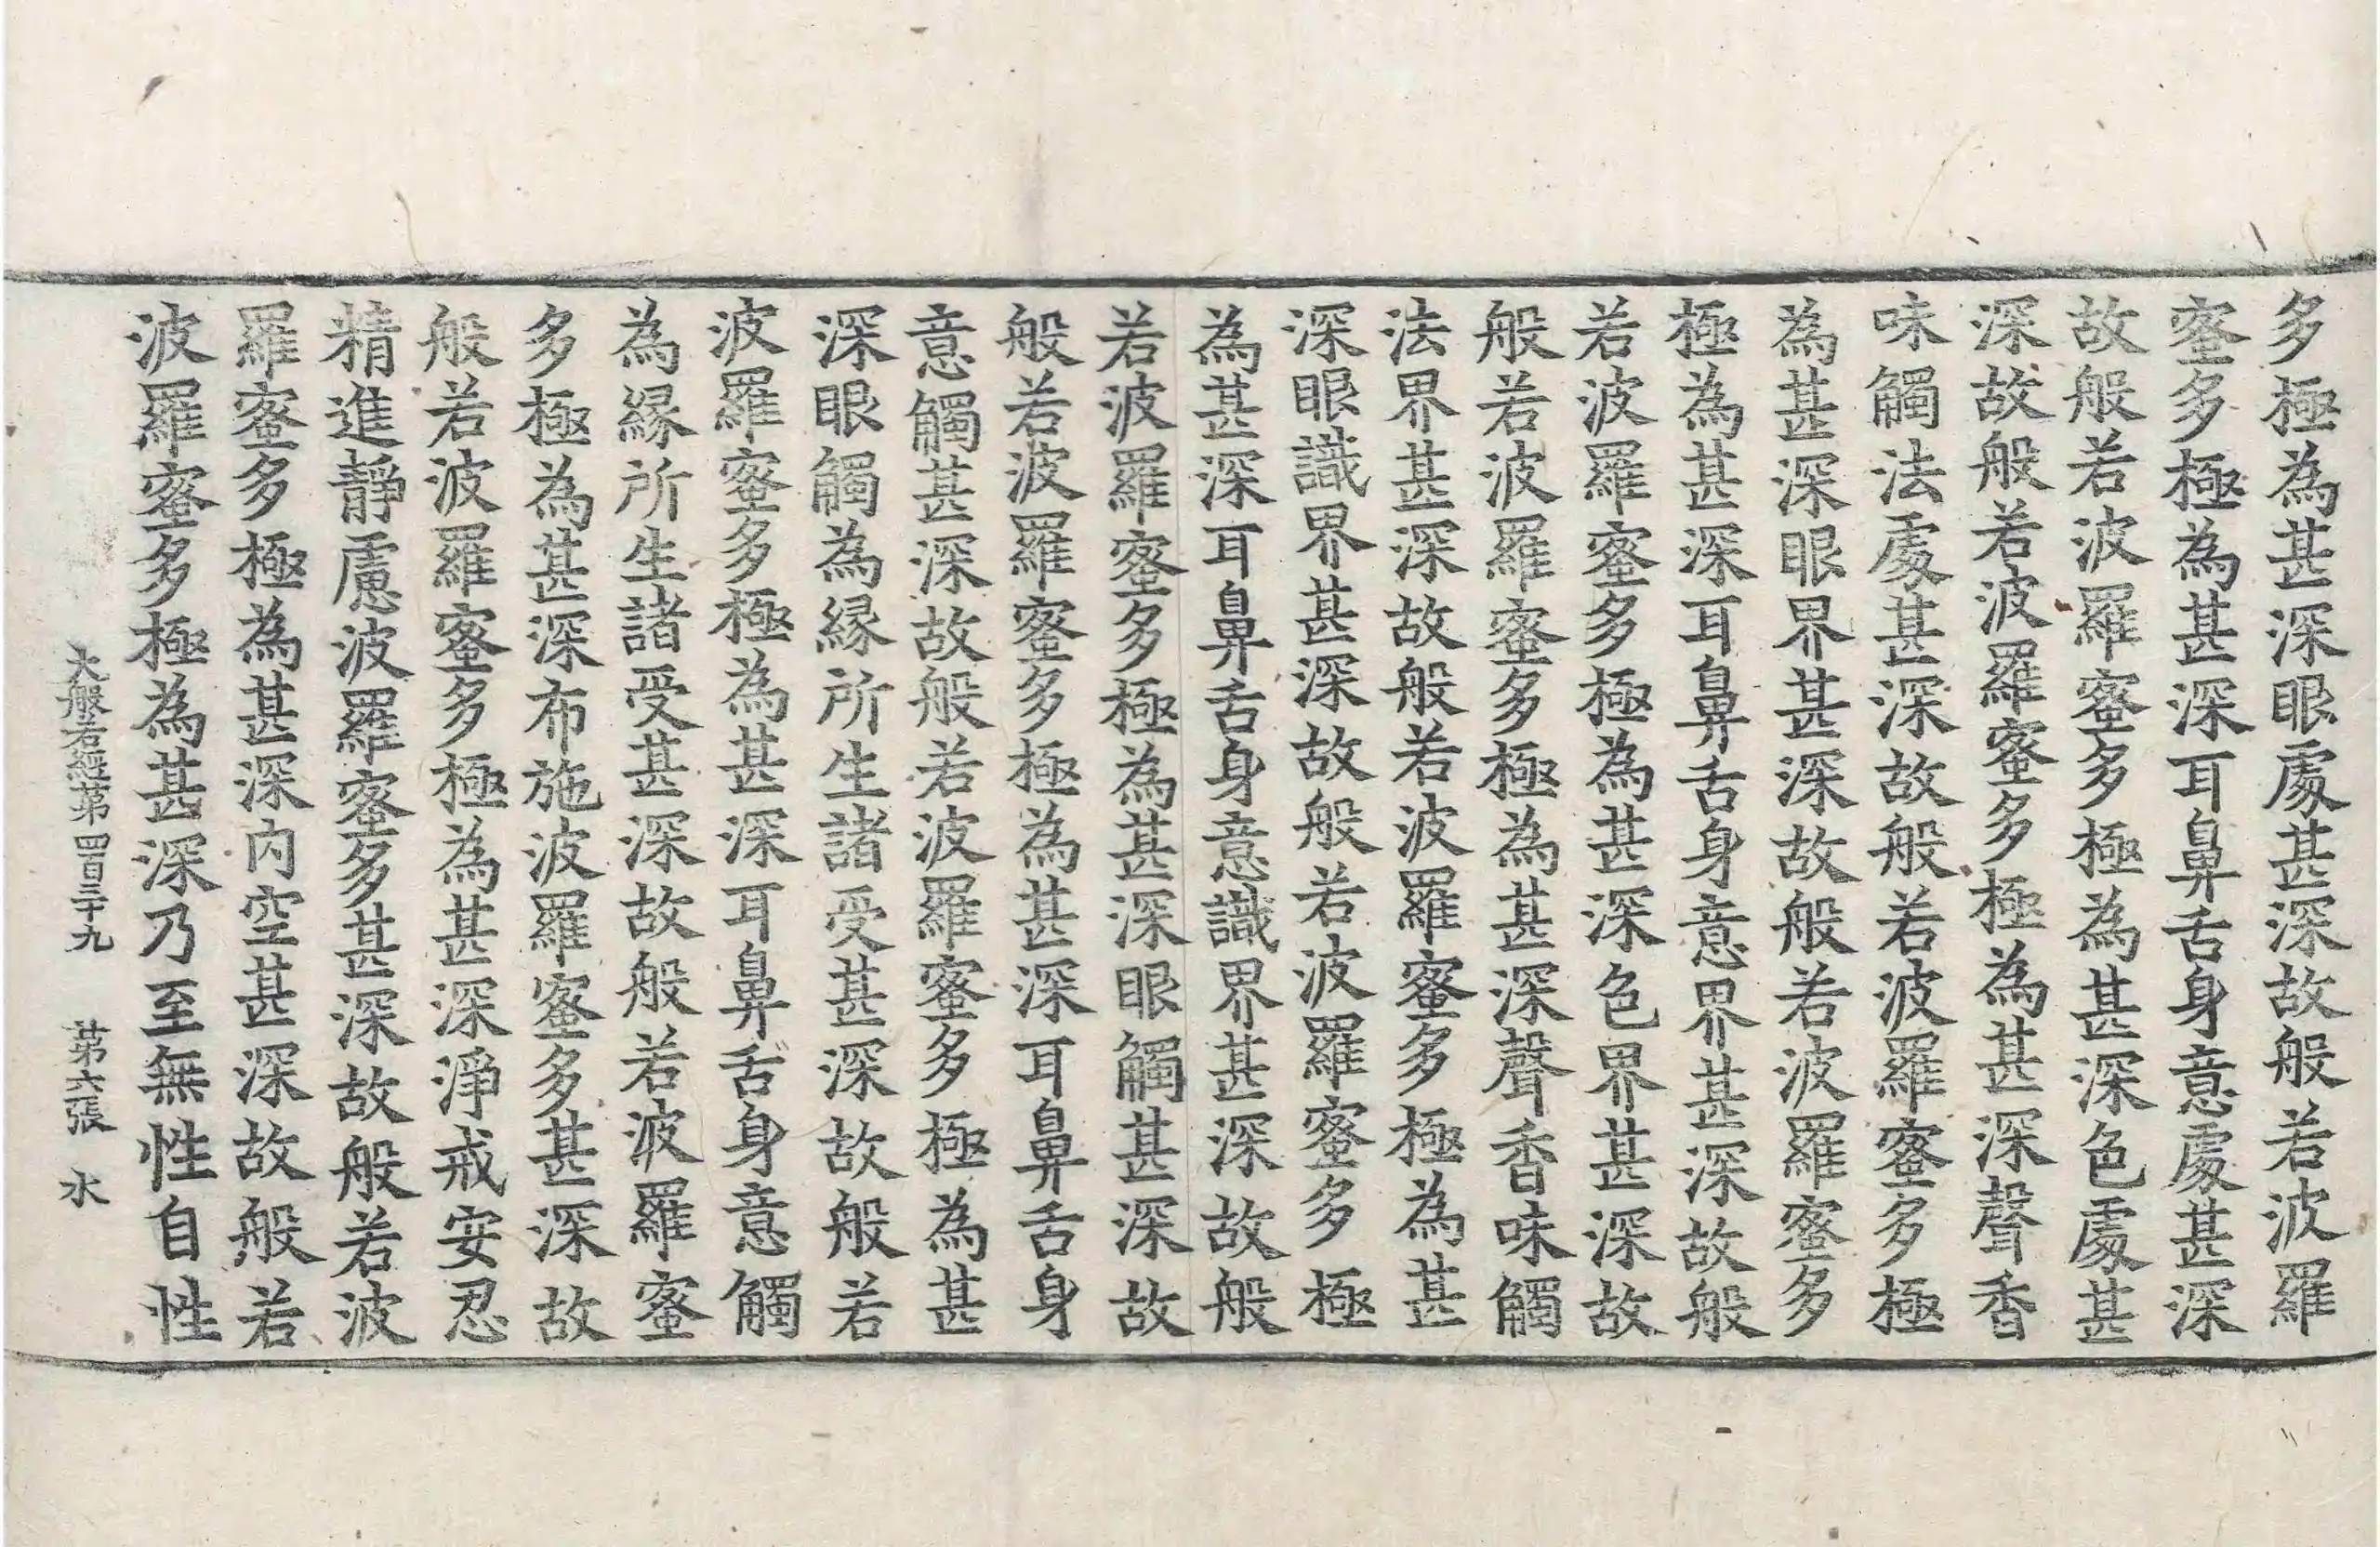 多極為甚深眼處甚深故般若波羅
蜜多極為甚深耳鼻舌身意處甚深
故般若波羅蜜多極為甚深色處甚
深故般若波羅蜜多極為甚深聲香
味觸法處甚深故般若波羅蜜多極
為甚深眼界甚深故般若波羅蜜多
極為甚深耳鼻舌身意界甚深故般
若波羅蜜多極為甚深色界甚深故
般若波羅蜜多極為甚深聲香味觸
法界甚深故般若波羅蜜多極為甚
深眼識界甚深故般若波羅蜜多極
為甚深耳鼻舌身意識界甚深故般
若波羅蜜多極為甚深眼觸甚深故
般若波羅蜜多極為甚深耳鼻舌身
意觸甚深故般若波羅蜜多極為甚
深眼觸為緣所生諸受甚深故般若
波羅蜜多極為甚深耳鼻舌身意觸
為緣所生諸受甚深故般若波羅蜜
多極為甚深布施波羅蜜多甚深故
般若波羅蜜多極為甚深淨戒安忍
精進靜慮波羅蜜多甚深故般若波
羅蜜多極為甚深內空甚深故般若
波羅蜜多極為甚深乃至無性自性
大般若經第四百三十九 第六張 水